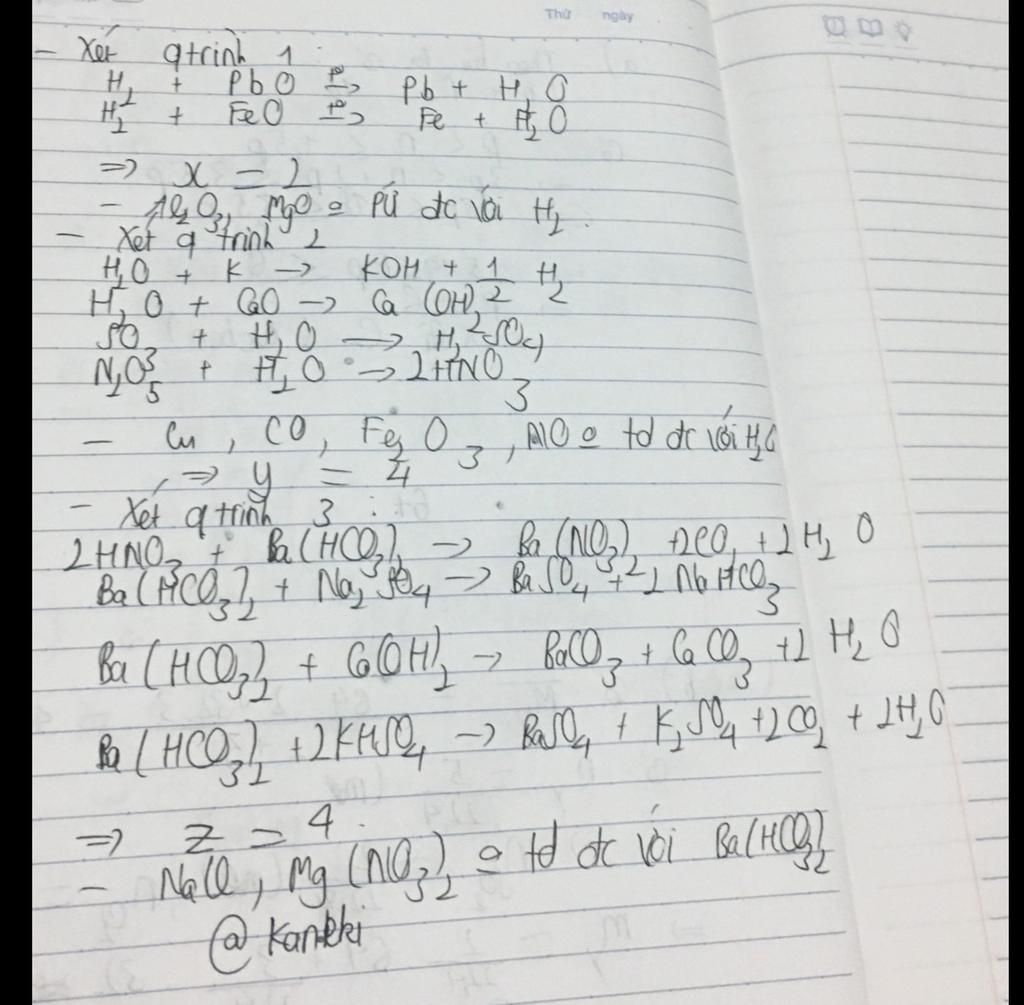 Thứ ngày
- Xét qtrình 1 :
H₂ + PbO →(t°) Pb + H₂O
H₂ + FeO →(t°) Fe + H₂O
=> x = 2
- Al₂O₃, MgO o PỨ đc với H₂.
- Xét q trình 2
H₂O + K → KOH + 1/2 H₂
H₂O + CaO → Ca(OH)₂
SO₃ + H₂O → H₂SO₄
N₂O₅ + H₂O → 2HNO₃
- Cu, CO, Fe₂O₃, NO o td đc với H₂O
=> y = 4
- Xét qtrình 3 :
2HNO₃ + Ba(HCO₃)₂ → Ba(NO₃)₂ + 2CO₂ + 2H₂O
Ba(HCO₃)₂ + Na₂SO₄ → BaSO₄ + 2NaHCO₃
Ba(HCO₃)₂ + Ca(OH)₂ → BaCO₃ + CaCO₃ + 2H₂O
Ba(HCO₃)₂ + 2KHSO₄ → BaSO₄ + K₂SO₄ + 2CO₂ + 2H₂O
=> z = 4.
- NaCl, Mg(NO₃)₂ o td đc với Ba(HCO₃)₂